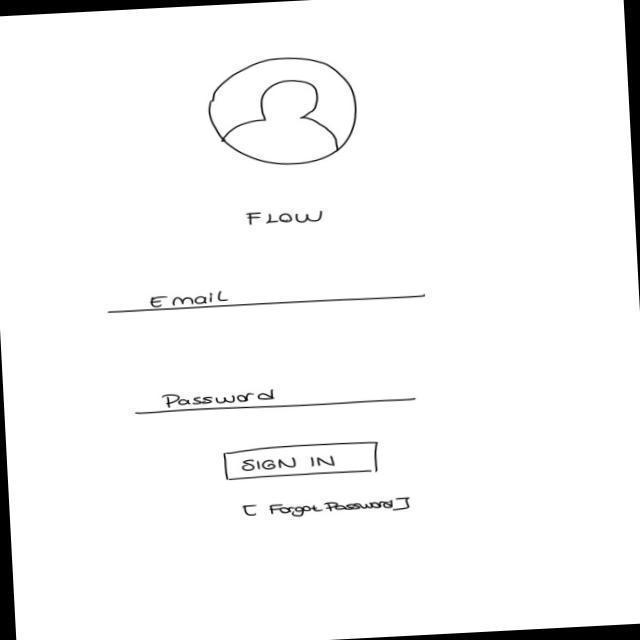 FLOW
Email
Password
SIGN IN
[ Forgot Password]